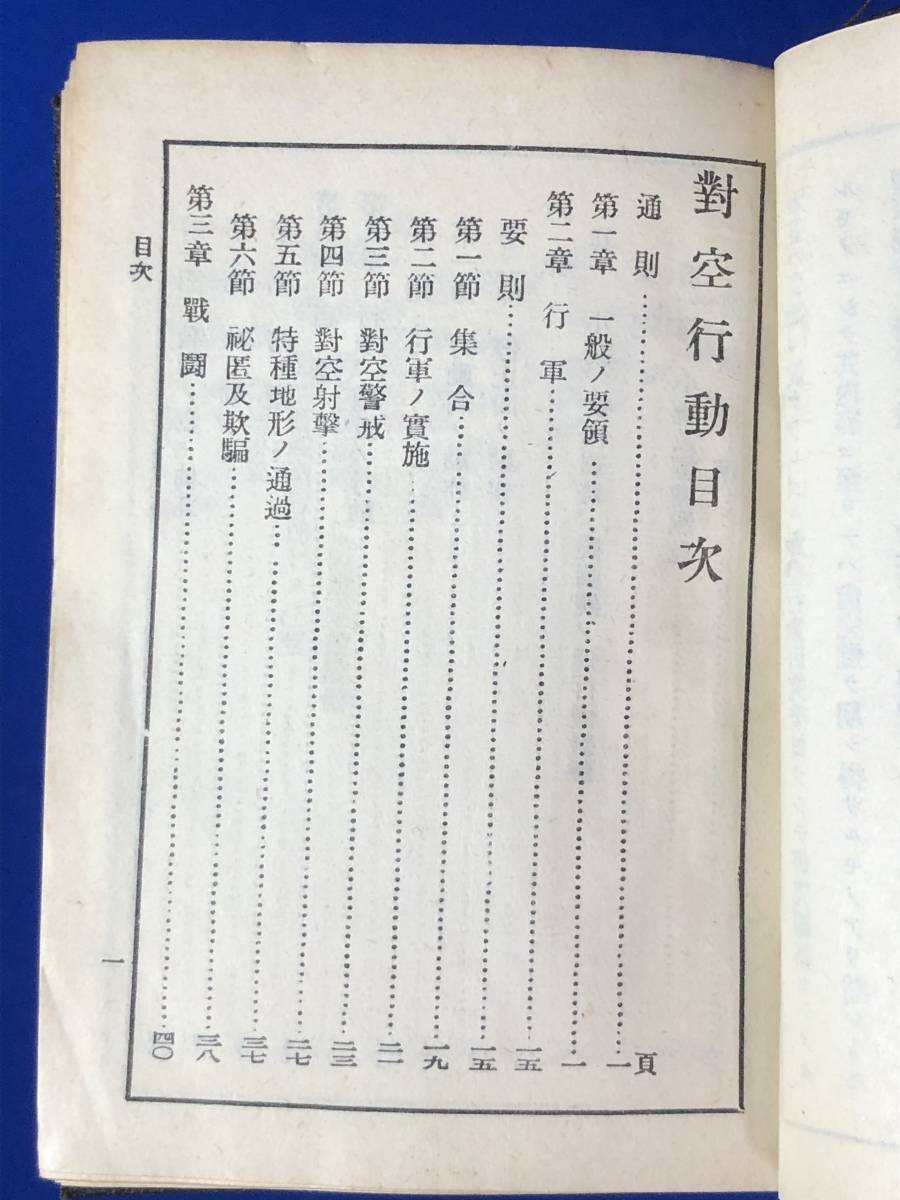 對空行動目次
通則……一頁
第一章 一般ノ要領……一
第二章 行軍……一五
要則……一五
第一節 集合……一九
第二節 行軍ノ實施……二一
第三節 對空警戒……二三
第四節 對空射擊……二七
第五節 特種地形ノ通過……三七
第六節 祕匿及欺騙……三八
第三章 戰鬪……四〇
目次
一